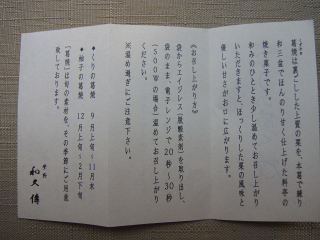 葛焼は裏ごしした上質の栗を、本葛で練り
和三盆でほんのり甘く仕上げた料亭の
焼き菓子です。
和みのひとときを少し温めてお召し上がり
いただきますと、ほっくりした栗の風味と
優しい甘さがお口に広がります。
《お召し上がり方》
袋からエイジレス(脱酸素剤)を取り出し、
袋のまま、電子レンジで20秒〜30秒
(500Wの場合)温めてお召し上がり
ください。
※温め過ぎにご注意下さい。
◆くりの葛焼 9月上旬〜11月末
◆柚子の葛焼 12月上旬〜2月下旬
「葛焼」は旬の素材を、その季節にご用意
致しております。
和久傳